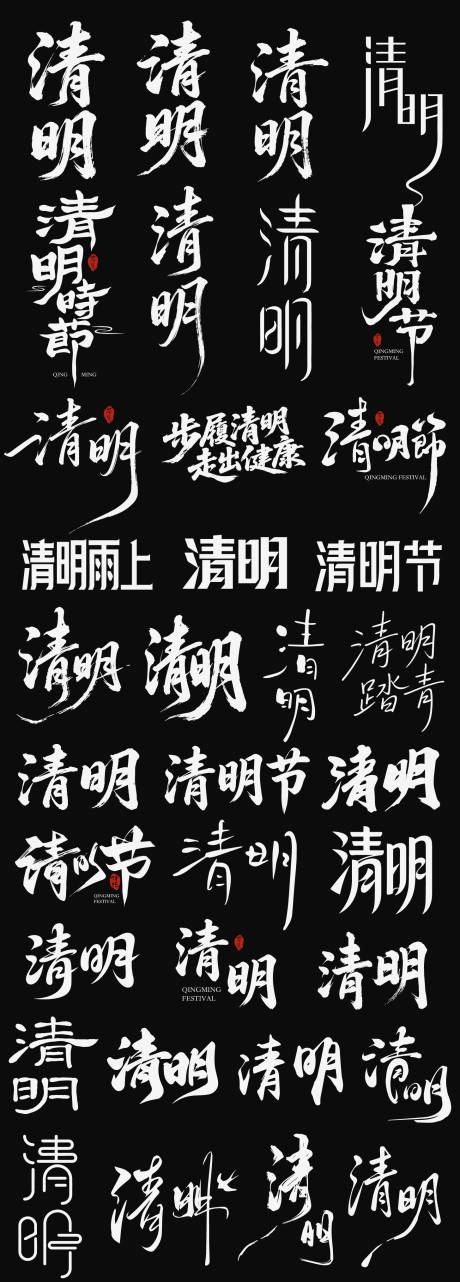 清明
清明
清明
清明
清明時節
QING MING
清明
清明
清明节
QINGMING
FESTIVAL
清明
步履清明
走出健康
清明節
QINGMING FESTIVAL
清明雨上
清明
清明节
清明
清明
清明
清明
踏青
清明
清明节
清明
清明节
QINGMING
FESTIVAL
清明
清明
清明
清明
QINGMING
FESTIVAL
清明
清明
清明
清明
清明
清明
清明
清明
清明